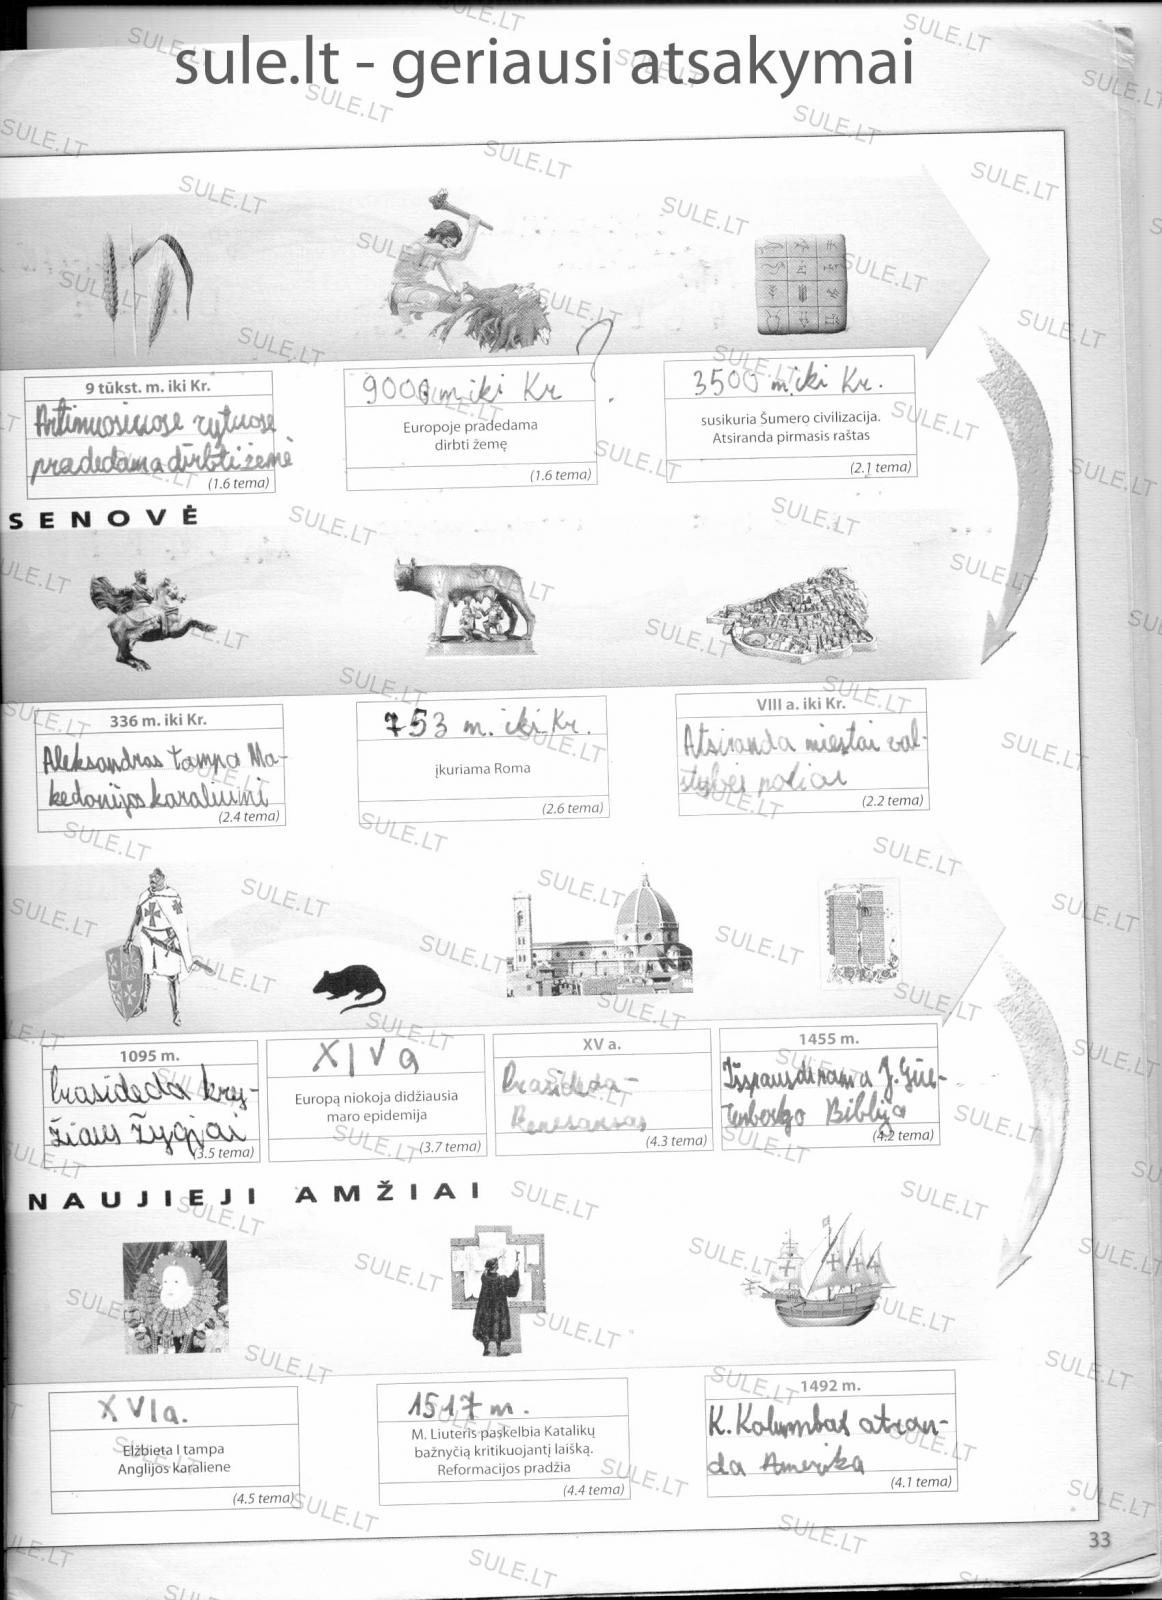 sule.lt - geriausi atsakymai
9 tūkst. m. iki Kr.
Artimuosiuose rytuose
pradedama dirbti žemė
(1.6 tema)
9000 m iki Kr ?
Europoje pradedama
dirbti žemę
(1.6 tema)
3500 m. iki Kr.
susikuria Šumero civilizacija.
Atsiranda pirmasis raštas
(2.1 tema)
SENOVĖ
336 m. iki Kr.
Aleksandras tampa Ma-
kedonijos karaliumi
(2.4 tema)
753 m. iki Kr.
įkuriama Roma
(2.6 tema)
VIII a. iki Kr.
Atsiranda miestai val-
stybės poliai
(2.2 tema)
1095 m.
Prasideda kry-
žiaus žygiai
(3.5 tema)
XIV a
Europą niokoja didžiausia
maro epidemija
(3.7 tema)
XV a.
Prasideda
Renesansas
(4.3 tema)
1455 m.
Išspausdinama J. Gu-
tenbergo Biblija
(4.2 tema)
NAUJIEJI AMŽIAI
XVI a.
Elžbieta I tampa
Anglijos karaliene
(4.5 tema)
1517 m.
M. Liuteris paskelbia Katalikų
bažnyčią kritikuojantį laišką.
Reformacijos pradžia
(4.4 tema)
1492 m.
K. Kolumbas atran-
da Ameriką
(4.1 tema)
33